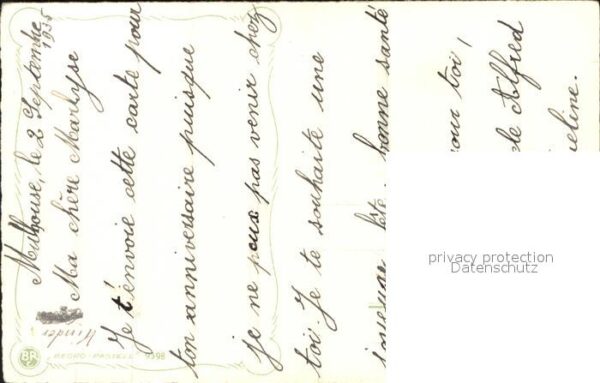 Mulhouse, le 2 Septembre
1935
Ma chère Marlyse
Je t'envoie cette carte pour
ton anniversaire puisque
je ne peux pas venir chez
toi. Je te souhaite une
joyeuse fête. bonne santé
pour toi!
Alfred
BR
9398
privacy protection
Datenschutz